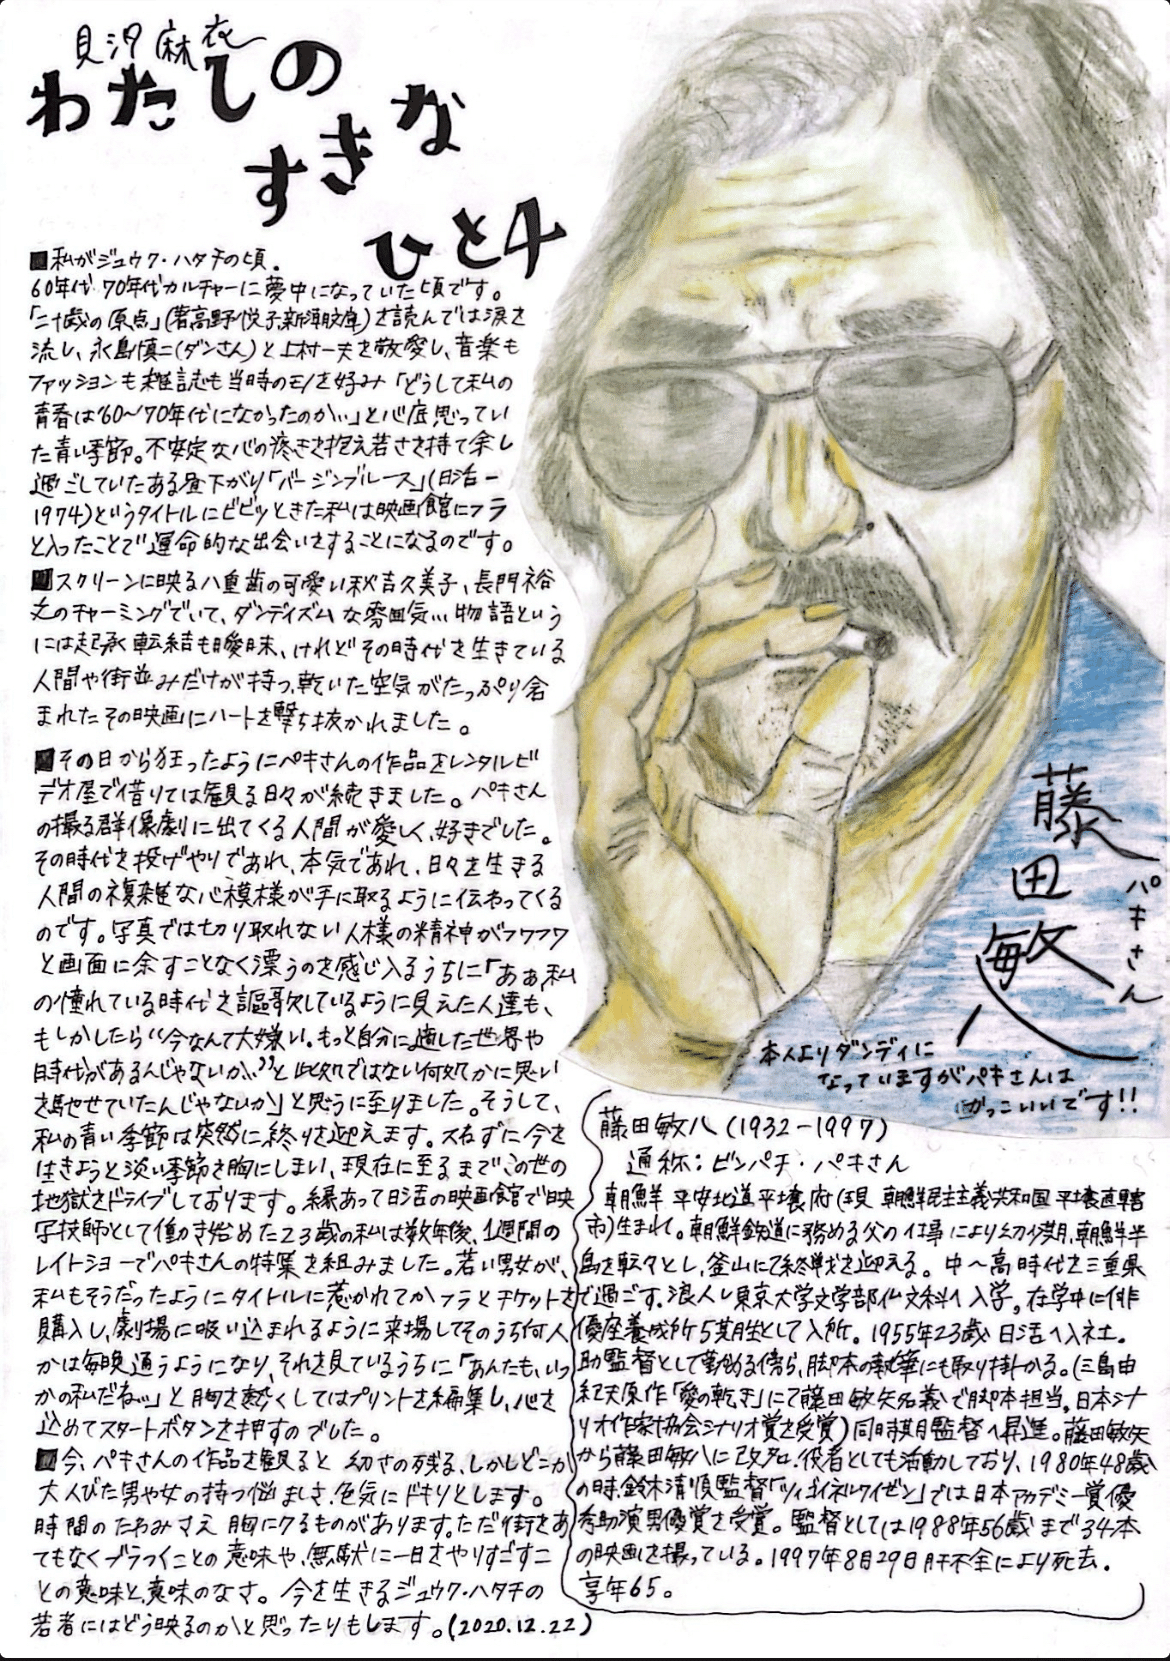 貝沢麻衣
わたしの
すきな
ひと4
■私がジュウク・ハタチの頃。
60年代70年代カルチャーに夢中になっていた頃です。
「二十歳の原点」(著高野悦子新潮文庫)を読んでは涙を
流し、永島慎二(ダンさん)と上村一夫を敬愛し、音楽も
ファッションも雑誌も当時のモノを好み「どうして私の
青春は'60〜70年代になかったのか…」と心底思ってい
た青い季節。不安定な心の疼きを抱え若さを持て余し
過ごしていたある昼下がり「バージンブルース」(日活-
1974)というタイトルにビビッときた私は映画館にフラ
と入ったことで運命的な出会いをすることになるのです。
■スクリーンに映る八重歯の可愛い秋吉久美子、長門裕
之のチャーミングでいて、ダンディズムな雰囲気…物語という
には起承転結も曖昧、けれどその時代を生きている
人間や街並みだけが持つ、乾いた空気がたっぷり含
まれたその映画にハートを撃ち抜かれました。
■その日から狂ったようにパキさんの作品をレンタルビ
デオ屋で借りては観る日々が続きました。パキさん
の撮る群像劇に出てくる人間が愛しく、好きでした。
その時代を投げやりであれ、本気であれ、日々を生きる
人間の複雑な心模様が手に取るように伝わってくる
のです。写真では切り取れない人様の精神がフワフワ
と画面に余すことなく漂うのを感じ入るうちに「あぁ、私
の憧れている時代を謳歌しているように見えた人達も、
もしかしたら“今なんて大嫌い。もっと自分に適した世界や
時代があるんじゃないか…”と此処ではない何処かに思い
を馳せていたんじゃないか」と思うに至りました。そうして、
私の青い季節は突然に終りを迎えます。スねずに今を
生きようと淡い季節を胸にしまい、現在に至るまでこの世の
地獄をドライブしております。縁あって日活の映画館で映
写技師として働き始めた23歳の私は数年後、1週間の
レイトショーでパキさんの特集を組みました。若い男女が、
私もそうだったようにタイトルに惹かれてかフラとチケットを
購入し、劇場に吸い込まれるように来場してそのうち何人
かは毎晩通うようになり、それを見ているうちに「あんたも、いつ
かの私だね…」と胸を熱くしてはプリントを編集し、心を
込めてスタートボタンを押すのでした。
■今、パキさんの作品を観ると 幼さの残る、しかしどこか
大人びた男や女の持つ悩ましさ、色気にドキリとします。
時間のたわみさえ胸にクるものがあります。ただ街をあ
てもなくブラつくことの意味や、無駄に一日をやりすごすこ
との意味と、意味のなさ。今を生きるジュウク・ハタチの
若者にはどう映るのかと思ったりもします。(2020.12.22)
藤田敏八
パキさん
本人よりダンディに
なっていますがパキさんは
かっこいいです!!
藤田敏八(1932-1997)
通称:ビンパチ・パキさん
朝鮮 平安北道平壌府(現 朝鮮民主主義共和国 平壌直轄
市)生まれ。朝鮮鉄道に務める父の仕事により幼少期、朝鮮半
島を転々とし、釜山にて終戦を迎える。中〜高時代を三重県
で過ごす。浪人し東京大学文学部仏文科へ入学。在学中に俳
優座養成所5期生として入所。1955年23歳日活へ入社。
助監督として勤める傍ら、脚本の執筆にも取り掛かる。(三島由
紀夫原作「愛の転き」にて藤田敏矢名義で脚本担当。日本シナ
リオ作家協会シナリオ賞を受賞)同時期監督へ昇進。藤田敏矢
から藤田敏八に改名。役者としても活動しており、1980年48歳
の時、鈴木清順監督「ツィゴイネルワイゼン」では日本アカデミー賞優
秀助演男優賞を受賞。監督としては1988年56歳まで34本
の映画を撮っている。1997年8月29日肝不全により死去。
享年65。